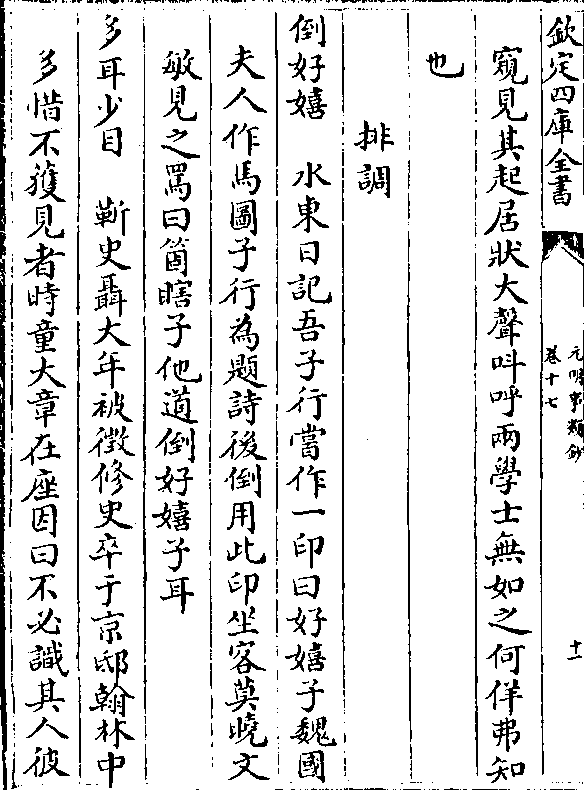 欽定四庫全書
元明事類鈔
卷十七
十一
窺見其起居狀大聲呌呼兩學士無如之何佯弗知
也
排調
倒好嬉 水東日記吾子行嘗作一印曰好嬉子魏國
夫人作馬圖子行為題詩後倒用此印坐客莫曉文
敏見之罵曰箇瞎子他道倒好嬉子耳
多耳少目 蘄史聶大年被徵修史卒于京邸翰林中
多惜不獲見者時童大章在座因曰不必識其人彼